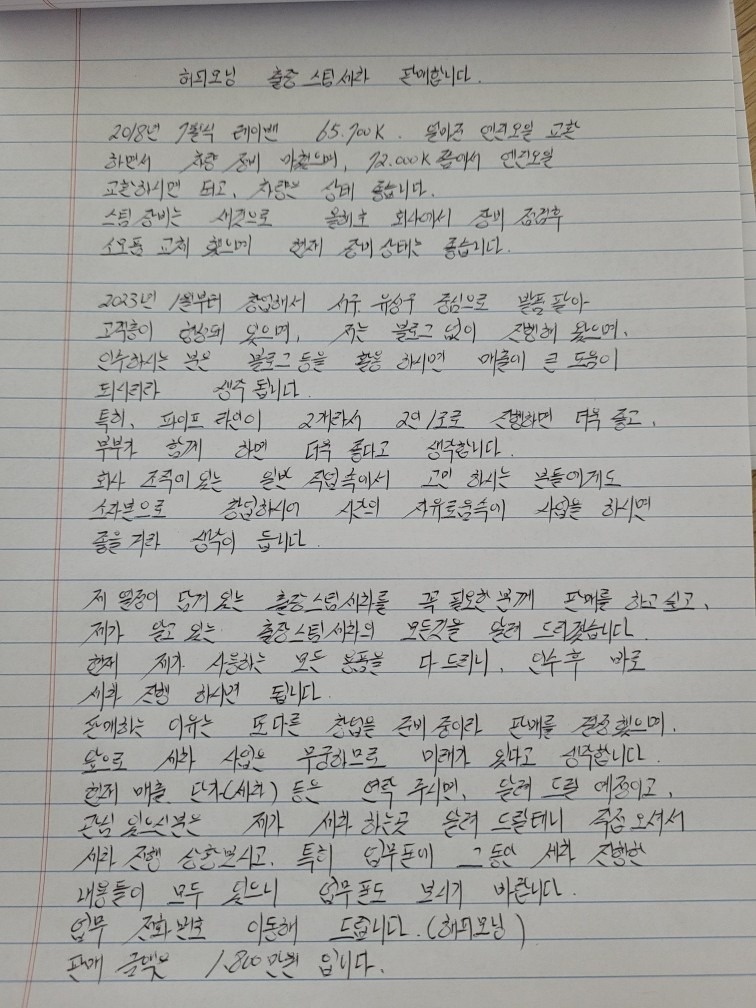 해피모닝 출장 스팀세차 판매합니다.
2018년 7월식 레이밴 65.700K. 얼마전 엔진오일 교환
하면서 차량 정비 마쳤으며, 72.000K 쯤에서 엔진오일
교환하시면 되고, 차량은 상태 좋습니다.
스팀 장비는 새것으로 올해초 회사에서 장비 점검후
소모품 교체 했으며 현재 장비 상태는 좋습니다.
2023년 1월부터 창업해서 서구. 유성구 중심으로 발품 팔아
고객층이 형성되 있으며, 저는 블로그 없이 진행해 왔으며,
인수하시는 분은 블로그 등을 활용 하시면 매출에 큰 도움이
되시리라 생각 됩니다.
특히, 파이프 라인이 2개라서 2인 1조로 진행하면 더욱 좋고,
부부가 함께 하면 더욱 좋다고 생각합니다.
회사 조직에 있는 일반 직업속에서 고민 하시는 분들에게도
소자본으로 창업하시어 시간의 자유로움속에 사업을 하시면
좋을 거라 생각이 듭니다.
제 열정이 담겨 있는 출장스팀세차를 꼭 필요한 분께 판매를 하고 싶고,
제가 알고 있는 출장스팀세차의 모든것을 알려 드리겠습니다.
현재 제가 사용하는 모든 용품을 다 드리니, 인수후 바로
세차 진행 하시면 됩니다.
판매하는 이유는 또다른 창업을 준비 중이라 판매를 결정 했으며,
앞으로 세차 사업은 무궁하므로 미래가 있다고 생각합니다.
현재 매출 단가(세차) 등은 연락 주시면, 알려 드릴 예정이고,
관심 있으신분은 제가 세차 하는곳 알려 드릴테니 직접 오셔서
세차 진행 상황보시고, 특히 업무폰에 그동안 세차 진행한
내용들이 모두 있으니 업무폰도 보시기 바랍니다.
업무 전화번호 이동해 드립니다. (해피모닝)
판매 금액은 1,800만원 입니다.